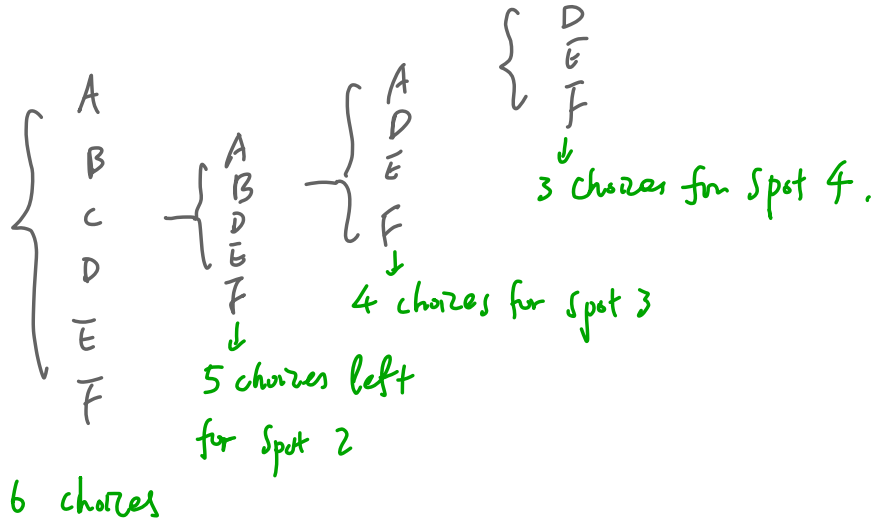 A
B
C
D
E
F
6 choices
A
B
D
E
F
5 choices left
for spot 2
A
D
E
F
4 choices for spot 3
D
E
F
3 choices for spot 4.